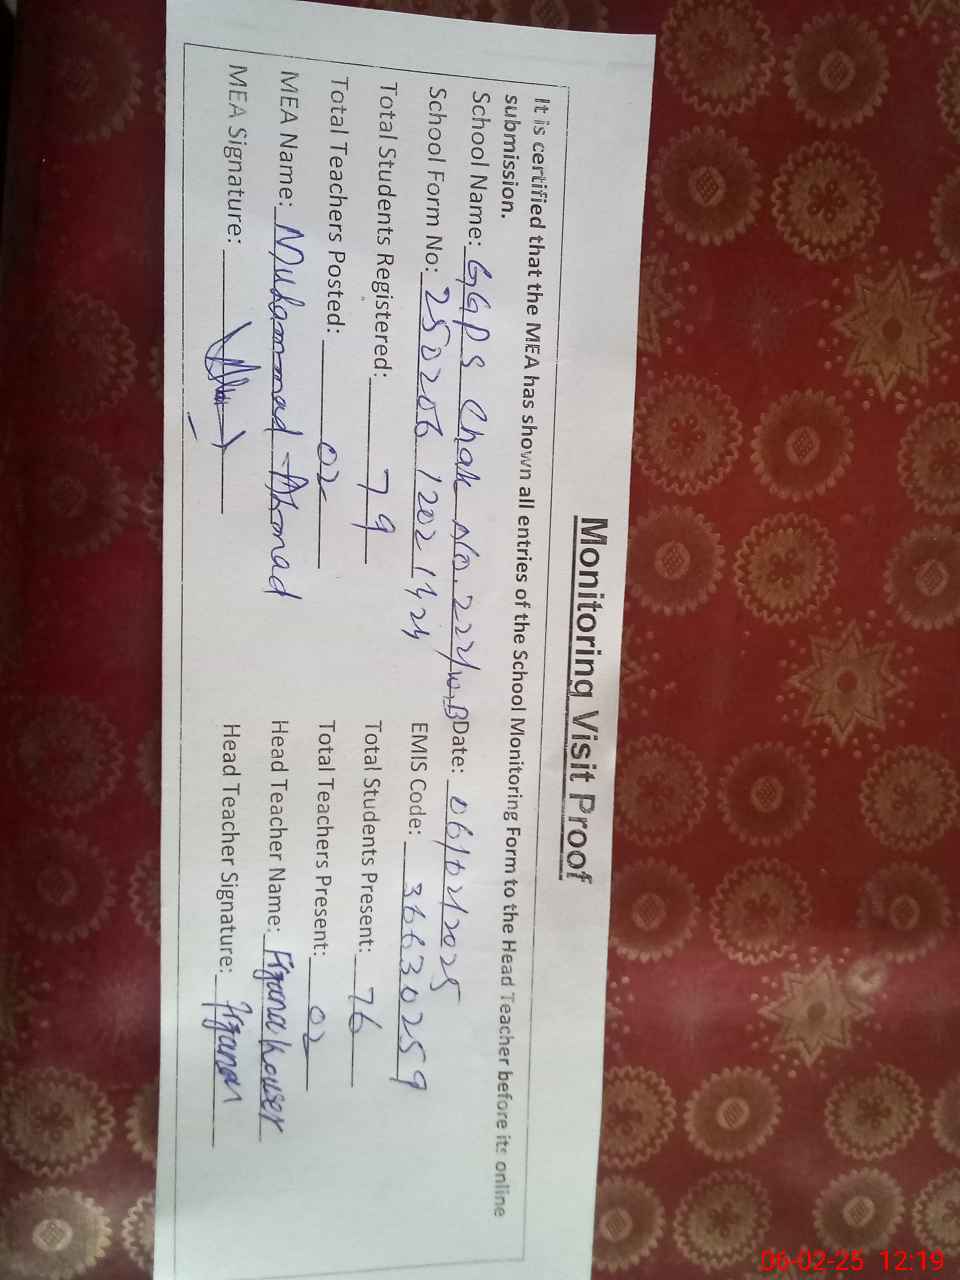 Monitoring Visit Proof
It is certified that the MEA has shown all entries of the School Monitoring Form to the Head Teacher before its online
submission.
School Name: GGPS Chak No. 222/10.B Date: 06/02/2025
School Form No: 250206 1202 1424 EMIS Code: 36630259
Total Students Registered: 79 Total Students Present: 76
Total Teachers Posted: 02 Total Teachers Present: 02
MEA Name: Muhammad Ahmad Head Teacher Name: Kouser
MEA Signature: Head Teacher Signature:
06-02-25 12:19